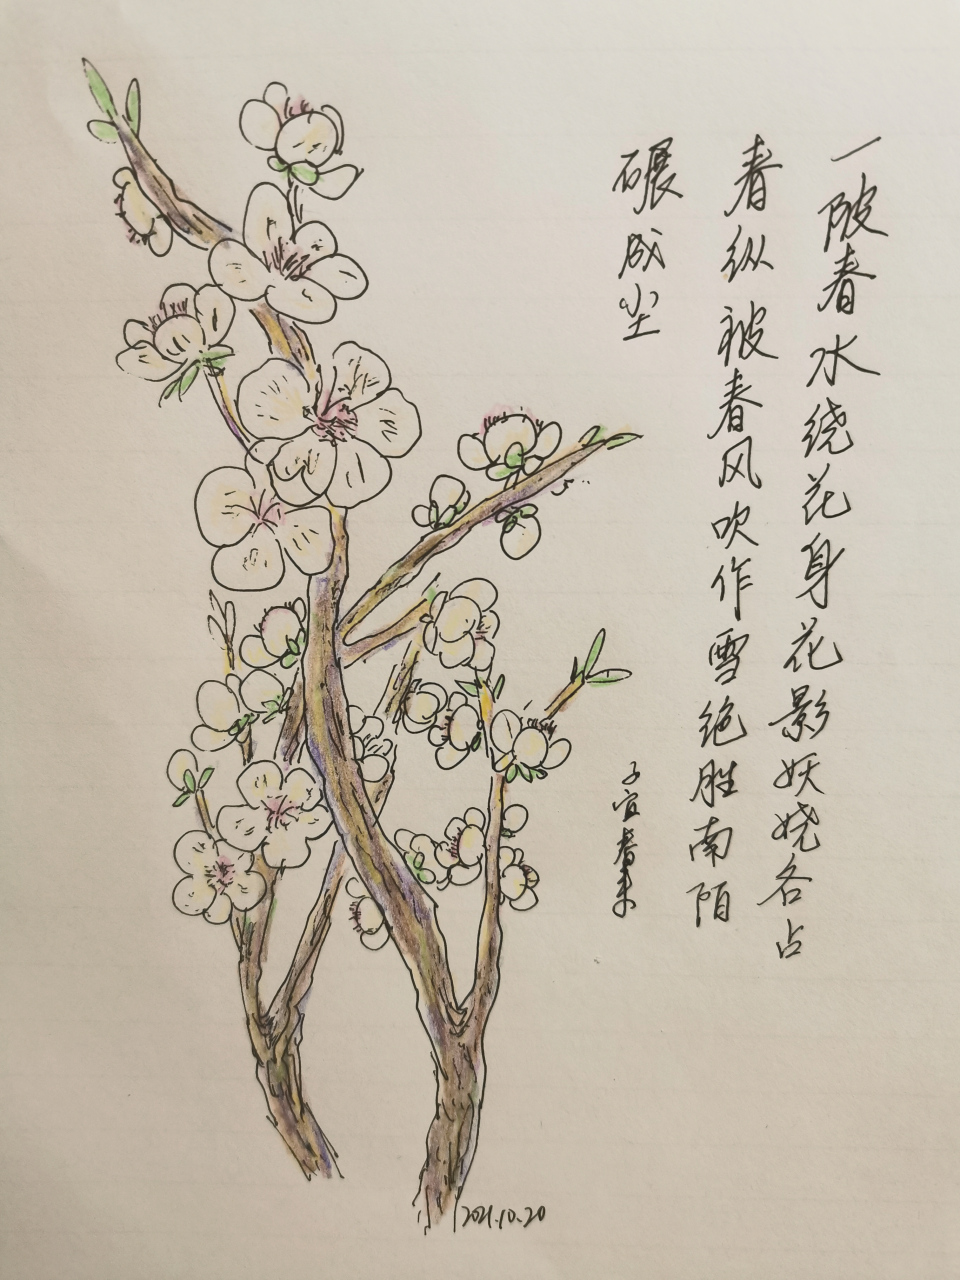 一陂春水绕花身花影妖娆各占
春纵被春风吹作雪绝胜南陌
碾成尘
2021.10.20